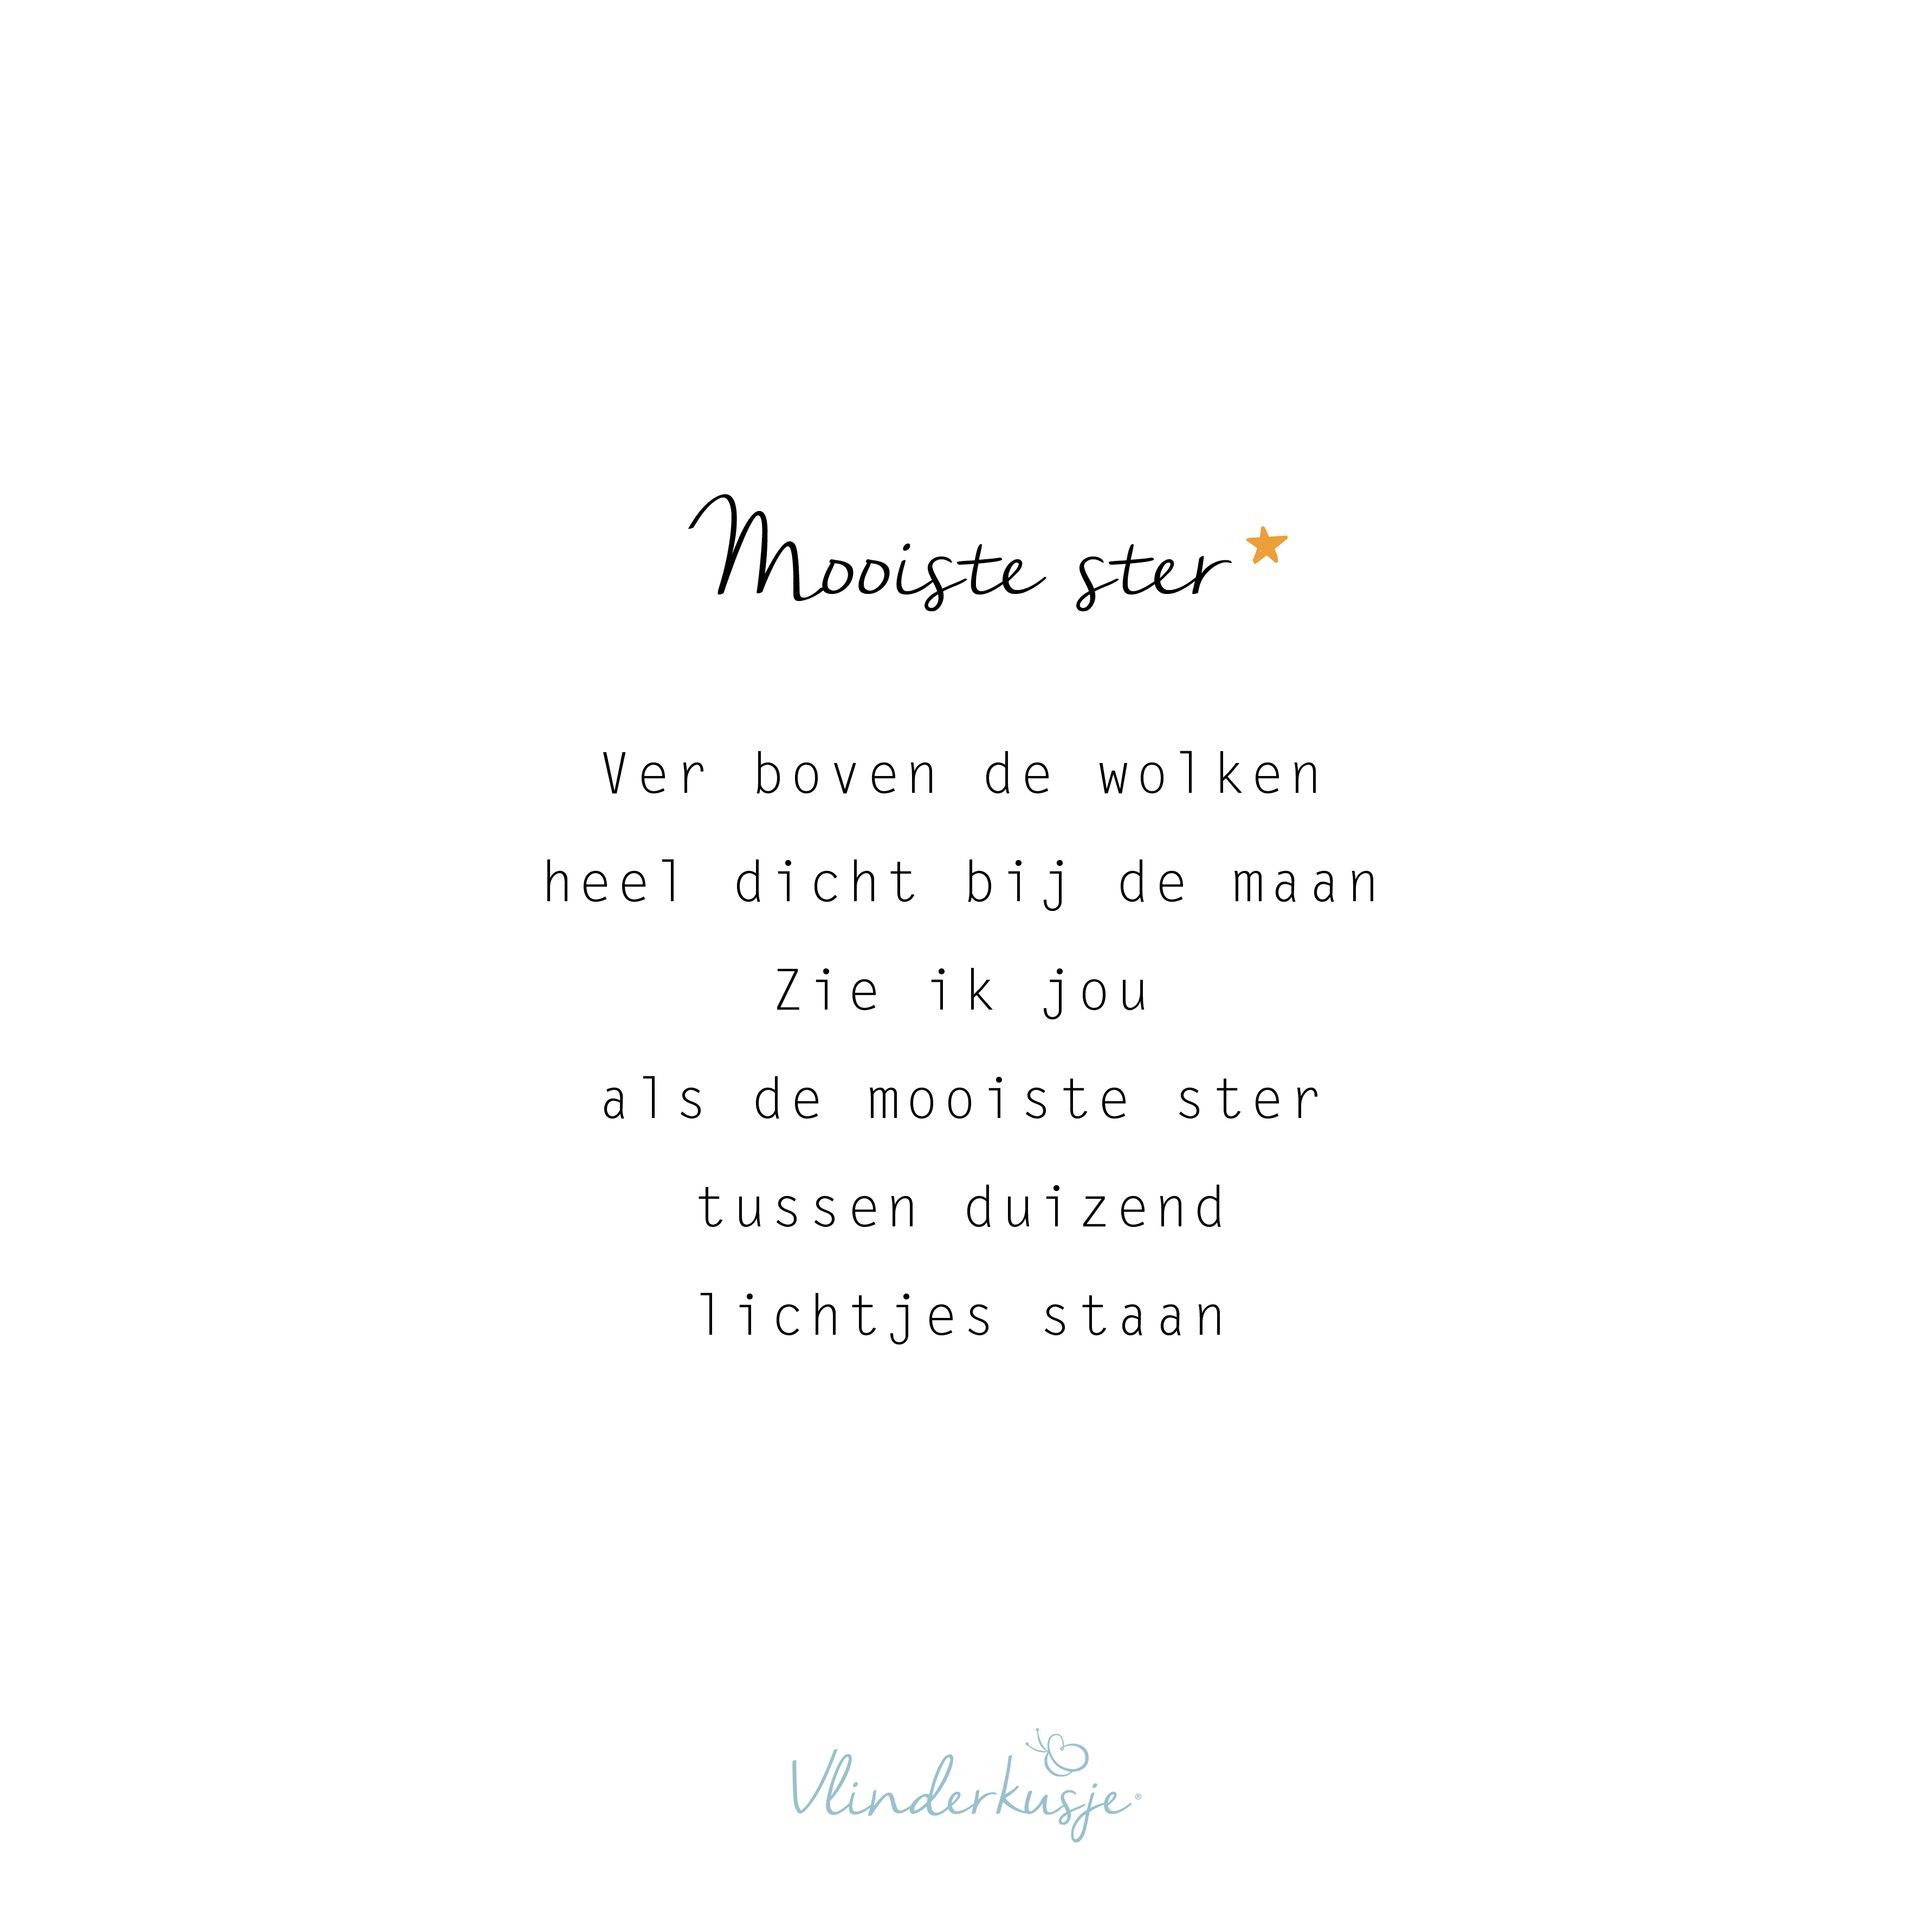 Mooiste ster
Ver boven de wolken
heel dicht bij de maan
Zie ik jou
als de mooiste ster
tussen duizend
lichtjes staan
Vlinderkusje®